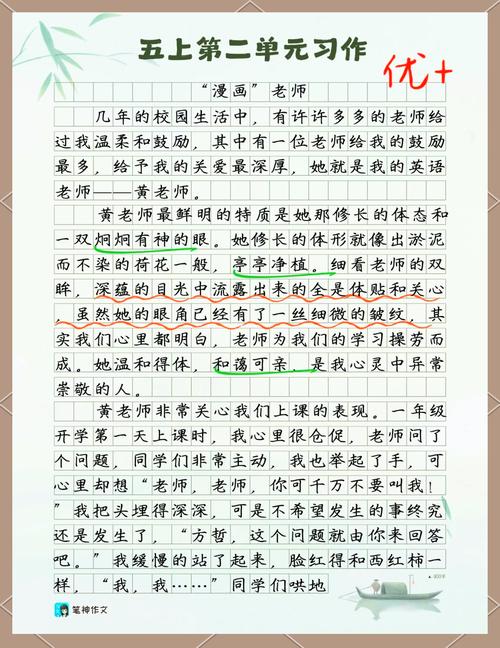 五上第二单元习作
优+
“漫画”老师
几年的校园生活中，有许许多多的老师给
过我温柔和鼓励，其中有一位老师给我的鼓励
最多，给予我的关爱最深厚，她就是我的英语
老师——黄老师。
黄老师最鲜明的特质是她那修长的体态和
一双炯炯有神的眼。她修长的体形就像出淤泥
而不染的荷花一般，亭亭净植。细看老师的双
眸，深蕴的目光中流露出来的全是体贴和关心
，虽然她的眼角已经有了一丝细微的皱纹，其
实我们心里都明白，老师为我们的学习操劳而
成。她温和得体，和蔼可亲，是我心灵中异常
崇敬的人。
黄老师非常关心我们上课的表现。一年级
开学第一天上课时，我心里很仓促，老师问了
个问题，同学们非常主动，我也举起了手，可
心里却想“老师，老师，你可千万不要叫我！”
我把头埋得深深，可是不希望发生的事终究
还是发生了，“方哲，这个问题就由你来回答
吧。”我缓慢的站了起来，脸红得和西红柿一
样，“我，我……”同学们哄地
笔神作文